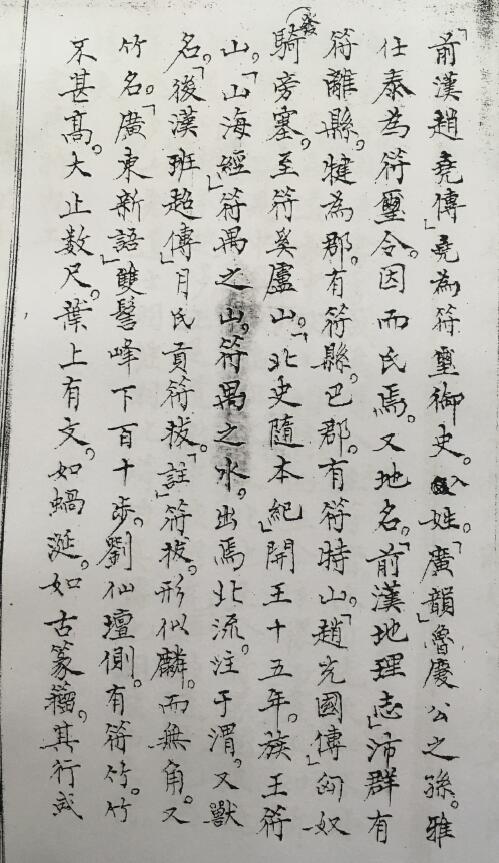 「前漢趙堯傳」堯為符璽御史。又姓。「廣韻」魯慶公之孫。雅
仕秦為符璽令。因而氏焉。又地名。「前漢地理志」沛群有
符離縣。犍為郡。有符縣。巴郡。有符特山。「趙充國傳」匈奴
發騎旁塞。至符奚盧山。「北史隨本紀」開王十五年。族王符
山。「山海經」符禺之山。符禺之水。出焉北流。注于渭。又獸
名。「後漢班超傳」月氏貢符拔。「註」符拔。形似麟。而無角。又
竹名。「廣東新語」雙髻峰下百十步。劉仙壇側。有符竹。竹
不甚高。大止数尺。葉上有文。如蝸涎。如古篆籀。其行或